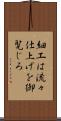 細工は流々
仕上げを御
覧じろ